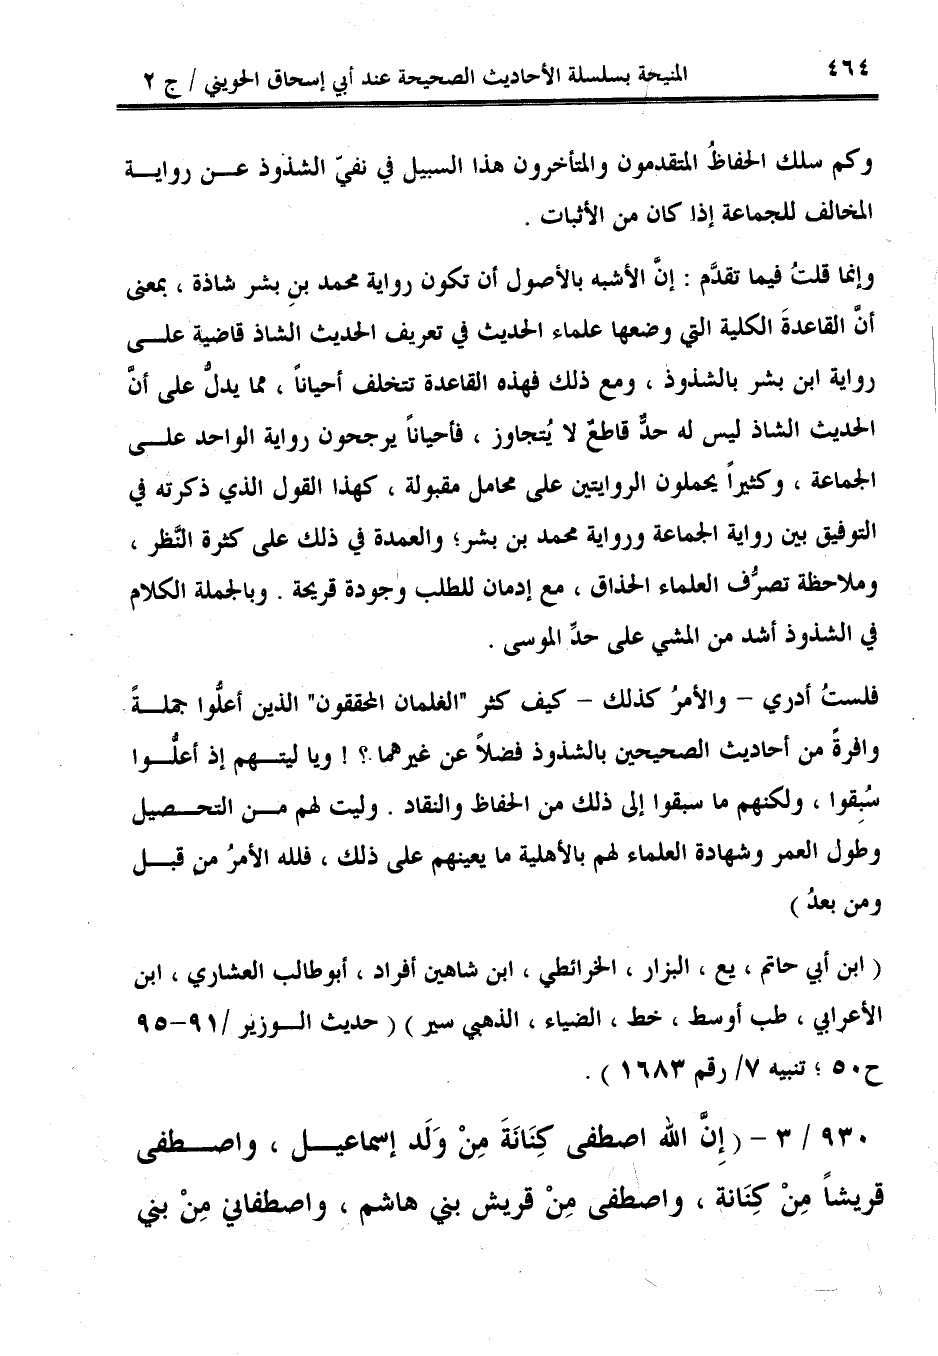 ٤٦٤
المنيحة بسلسلة الأحاديث الصحيحة عند أبي إسحاق الحويني / ج ٢
وكم سلك الحفاظُ المتقدمون والمتأخرون هذا السبيل في نفيّ الشذوذ عــن روايــة
المخالف للجماعة إذا كان من الأثبات .
وإنما قلتُ فيما تقدَّم : إنَّ الأشبه بالأصول أن تكون رواية محمد بن بشر شاذة ، بمعنى
أنَّ القاعدةَ الكلية التي وضعها علماء الحديث في تعريف الحديث الشاذ قاضية علــى
رواية ابن بشر بالشذوذ ، ومع ذلك فهذه القاعدة تتخلف أحياناً ، مما يدلُّ على أنَّ
الحديث الشاذ ليس له حدٌّ قاطعٌ لا يُتجاوز ، فأحياناً يرجحون رواية الواحد علــى
الجماعة ، وكثيراً يحملون الروايتين على محامل مقبولة ، كهذا القول الذي ذكرته في
التوفيق بين رواية الجماعة ورواية محمد بن بشر؛ والعمدة في ذلك على كثرة النَّظر ،
وملاحظة تصرُّف العلماء الحذاق ، مع إدمان للطلب وجودة قريحة . وبالجملة الكلام
في الشذوذ أشد من المشي على حدِّ الموسى .
فلستُ أدري – والأمرُ كذلك – كيف كثر "الغلمان المحققون" الذين أعلُّوا جملــةً
وافرةً من أحاديث الصحيحين بالشذوذ فضلاً عن غيرهما ؟ ! ويا ليتــهم إذ أعلُّــوا
سُبِقوا ، ولكنهم ما سبقوا إلى ذلك من الحفاظ والنقاد . وليت لهم مــن التحــصيل
وطول العمر وشهادة العلماء لهم بالأهلية ما يعينهم على ذلك ، فلله الأمرُ من قبــل
ومن بعدُ )
( ابن أبي حاتم ، يع ، البزار ، الخرائطي ، ابن شاهين أفراد ، أبوطالب العشاري ، ابن
الأعرابي ، طب أوسط ، خط ، الضياء ، الذهبي سير ) ( حديث الــوزير /٩١–٩٥
ح٥٠ ؛ تنبيه ٧/ رقم ١٦٨٣ ) .
٩٣٠ / ٣ – ( إنَّ الله اصطفى كِنَانَةَ مِنْ وَلَدِ إسماعيــل ، واصــطفى
قريشاً مِنْ كِنَانة ، واصطفى مِنْ قريش بني هاشم ، واصطفاني مِنْ بني